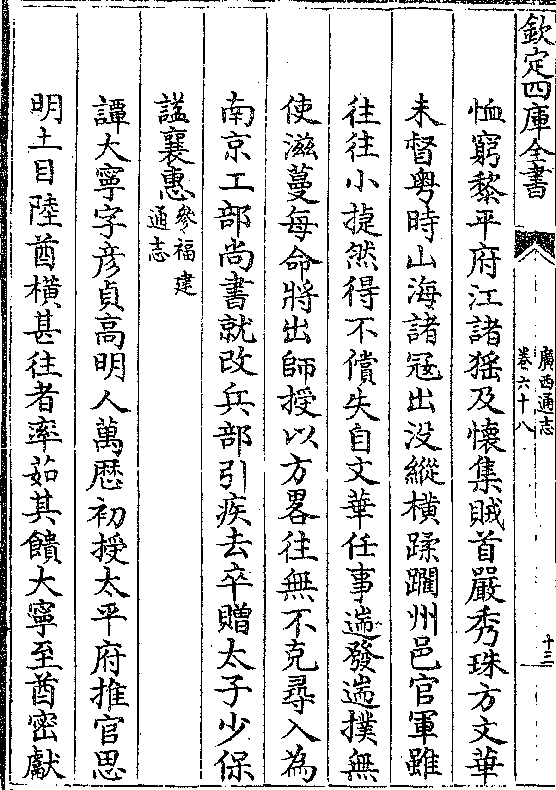 欽定四庫全書
廣西通志
卷六十八
十三
恤窮黎平府江諸猺及懷集賊首嚴秀珠方文華
未督粤時山海諸冦出没縱横蹂躙州邑官軍雖
往往小捷然得不償失自文華任事遄發遄撲無
使滋蔓每命將出師授以方畧往無不克尋入為
南京工部尚書就改兵部引疾去卒贈太子少保
諡襄惠參福建通志
譚大寧字彦貞高明人萬厯初授太平府推官思
明土目陸酋横甚往者率茹其饋大寧至酋密獻